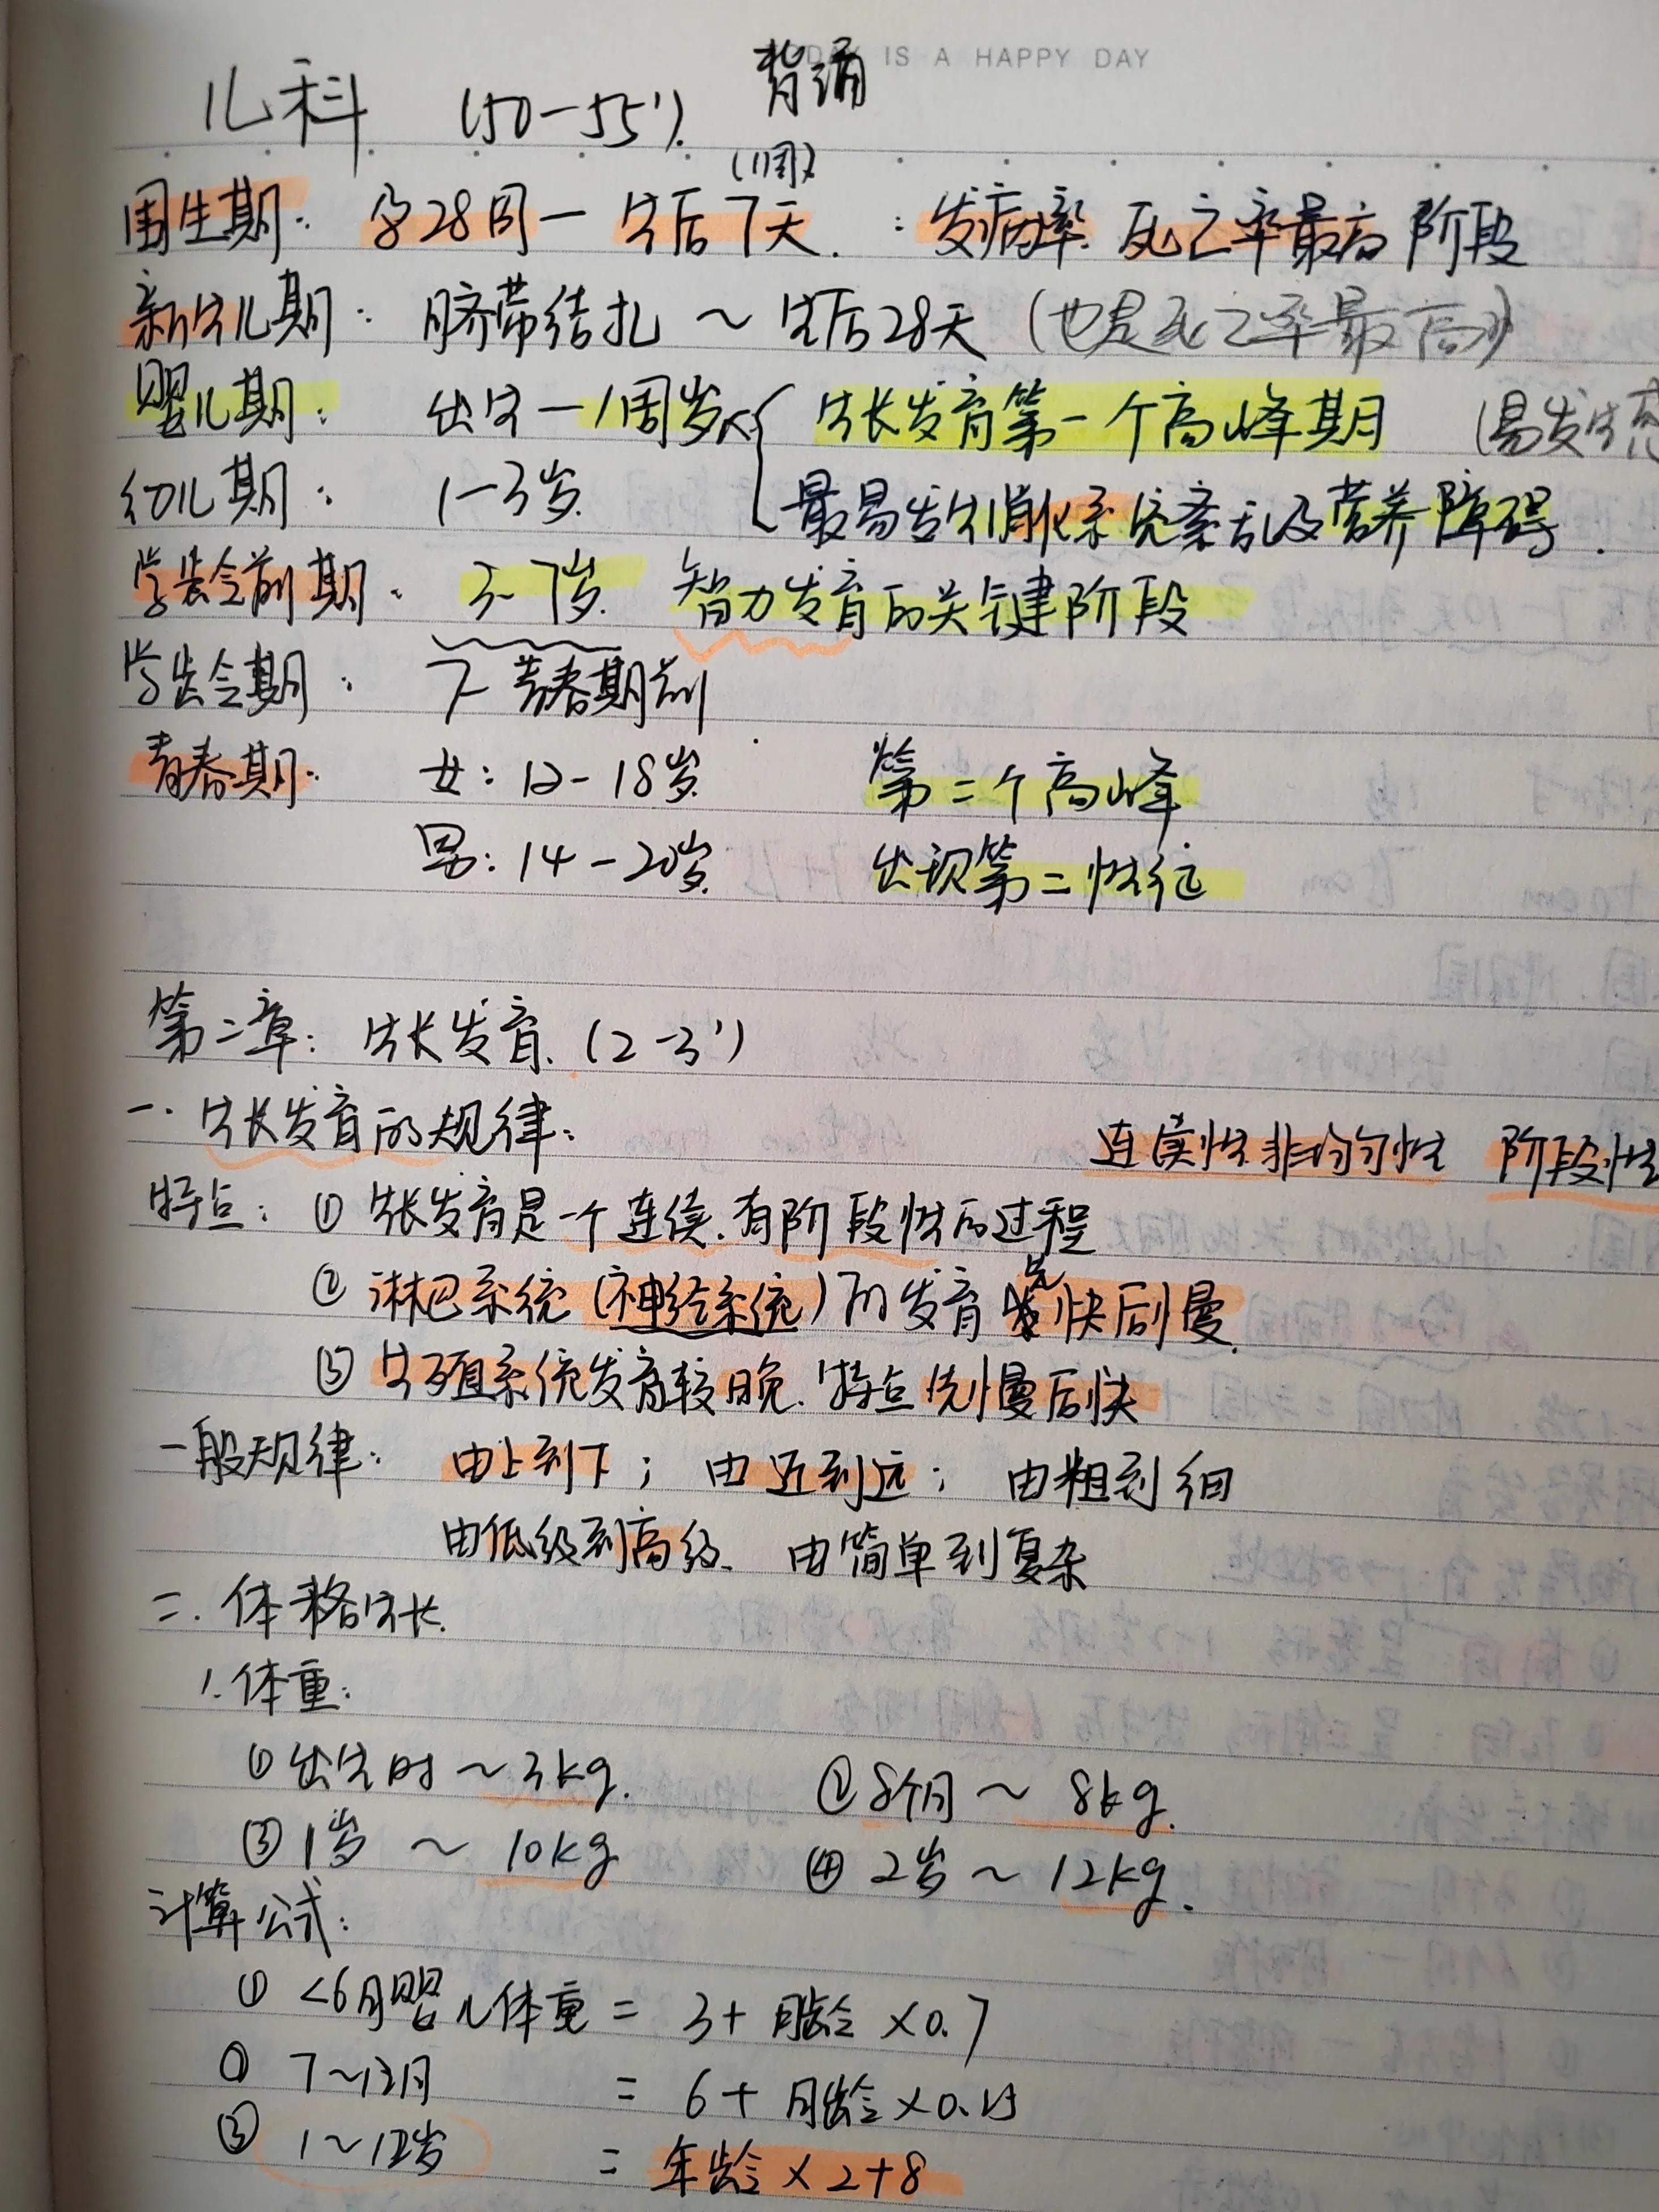 IS A HAPPY DAY
儿科 (50-55') 背诵
(1周)
围生期: 孕28周一生后7天. : 发病率.死亡率最高阶段
新生儿期: 脐带结扎~生后28天(也是死亡率最高)
婴儿期: 出生一1周岁 { 生长发育第一个高峰期 (易发生
幼儿期: 1-3岁 最易发生消化系统紊乱及营养障碍.
学龄前期. 3~7岁. 智力发育的关键阶段
学龄期: 7-青春期前
青春期. 女: 12-18岁 第二个高峰
男: 14-20岁 出现第二性征
第二章: 生长发育.(2-3')
一. 生长发育的规律: 连续性.非均匀性 阶段性
特点: ① 生长发育是一个连续.有阶段性的过程
② 淋巴系统(神经系统)的发育先快后慢.
③ 生殖系统发育较晚.特点先慢后快
一般规律: 由上到下; 由近到远; 由粗到细
由低级到高级. 由简单到复杂
二. 体格生长.
1. 体重:
① 出生时~3kg. ② 8个月~8kg.
③ 1岁~10kg ④ 2岁~12kg.
计算公式:
① <6月婴儿体重 = 3+月龄×0.7
② 7~12月 = 6+月龄×0.25
③ 1~12岁 = 年龄×2+8